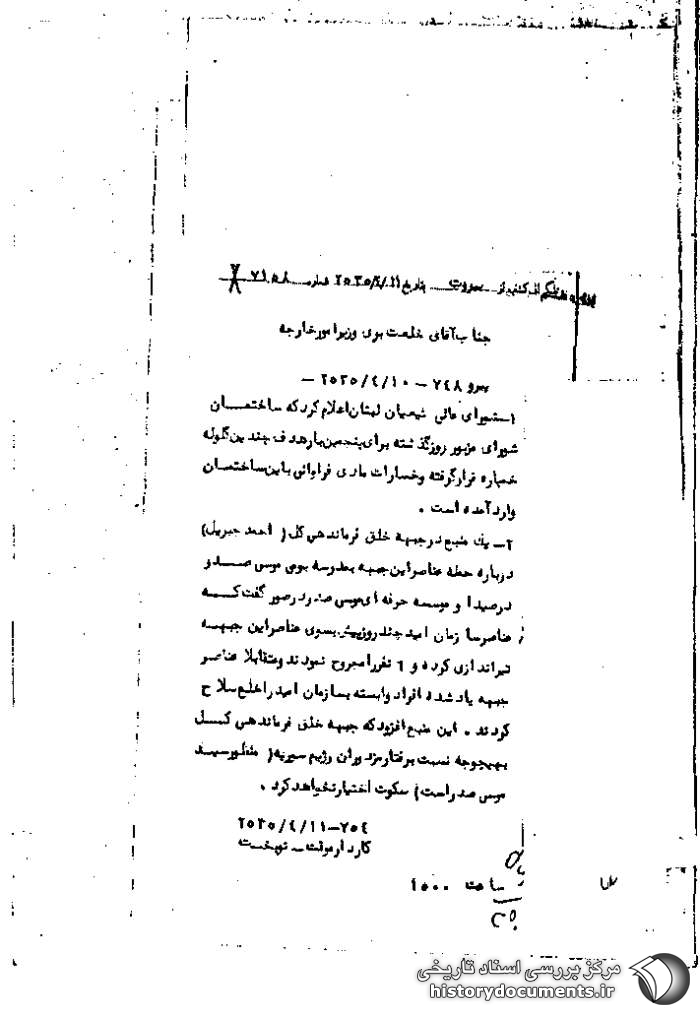 تلگراف کشف از بیروت بتاریخ ۲۵۳۵/۴/۱۱ شماره ۷۱۵۸
جناب آقای خلعت بری وزیر امور خارجه
پیرو ۷۴۸ – ۲۵۳۵/۴/۱۰ –
۱- شورای عالی شیعیان لبنان اعلام کرد که ساختمان
شورای مزبور روز گذشته برای پنجمین بار هدف چندین گلوله
خمپاره قرار گرفته و خسارات مادی فراوانی باین ساختمان
وارد آمده است .
۲- یک منبع در جبهه خلق فرماندهی کل ( احمد جبریل )
درباره حمله عناصر این جبهه بمدرسه بومی موسی صدر و
در صیدا و موسسه حرفه ای موسی صدر در صور گفت که
عناصر سازمان امید چند روز پیش بسوی عناصر این جبهه
تیراندازی کرده و ٦ نفر را مجروح نمودند و متقابلا عناصر
جبهه یاد شده افراد وابسته بسازمان امید را خلع سلاح
کردند . این منبع افزود که جبهه خلق فرماندهی کل
بهیچوجه نسبت برفتار مزدوران رژیم سوریه ( منظور سید
موسی صدر است ) سکوت اختیار نخواهد کرد .
۷۵۴-۲۵۳۵/۴/۱۱
کاردار موقت –
ساعت ۱۵۰۰
مرکز بررسی اسناد تاریخی
historydocuments.ir